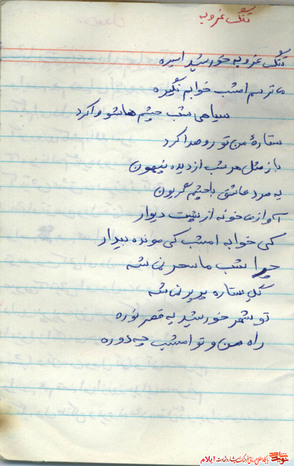 تنگ غروب
تنگ غروبه خورشید اسیره
می ترسم امشب خوابم نگیره
سیاهی شب چشم هاشو وا کرد
ستارهٔ من تو رو صدا کرد
باز مثل هر شب از دیده پنهون
یه مرد عاشق با چشم گریون
آوازی خونه از پشت دیوار
کی خوابه امشب کی مونده بیدار
چرا شب ما سحر نمی شه
گل ستاره پر پر نمی شه
تو شهر خورشید یه قصر نوره
راه من و تو امشب چه دوره